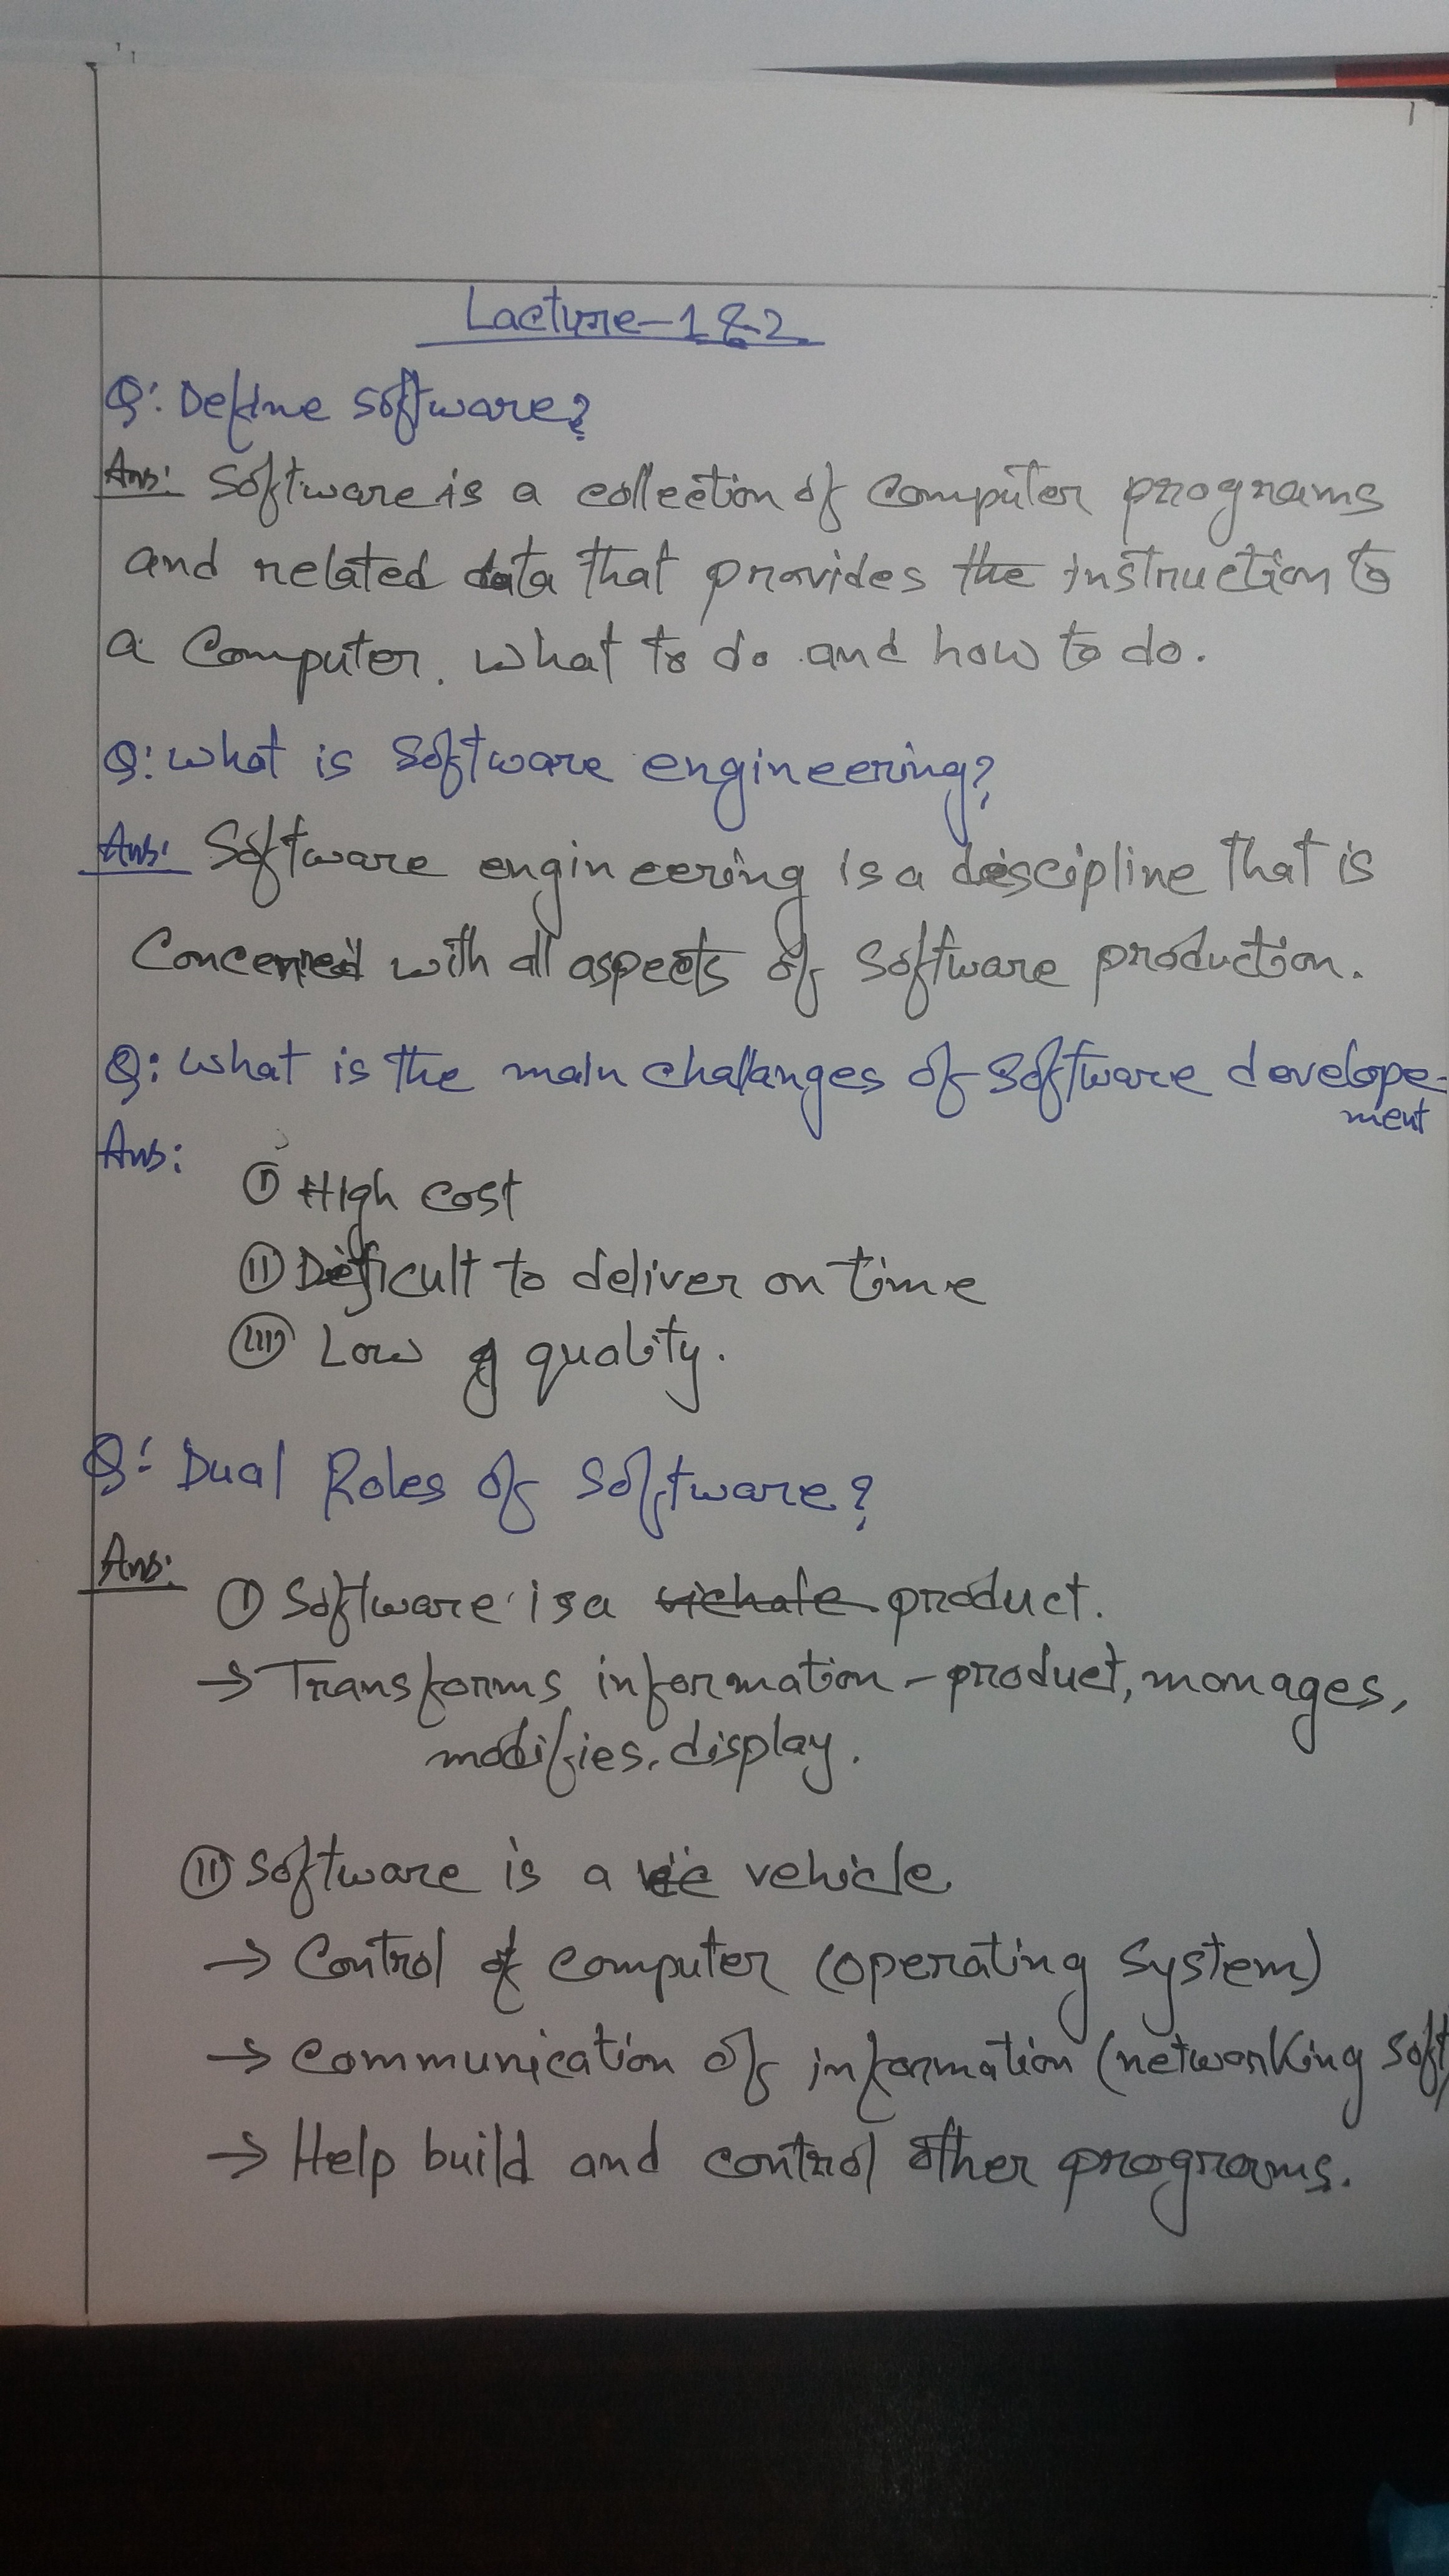 1
Lacture-1&2
Q: Define software?
Ans: Software is a collection of computer programs
and related data that provides the instruction to
a computer. what to do and how to do.
Q: what is software engineering?
Ans: Software engineering is a descipline that is
Concerned with all aspects of software production.
Q: what is the main challanges of software develope-
ment
Ans:
(i) High cost
(ii) Deficult to deliver on time
(iii) Low quality.
Q: Dual Roles of software?
Ans:
(i) Software is a product.
→ Transforms information - product, manages,
modifies, display.
(ii) software is a vehicle
→ Control of computer (operating system)
→ communication of information (networking soft
→ Help build and control other programs.